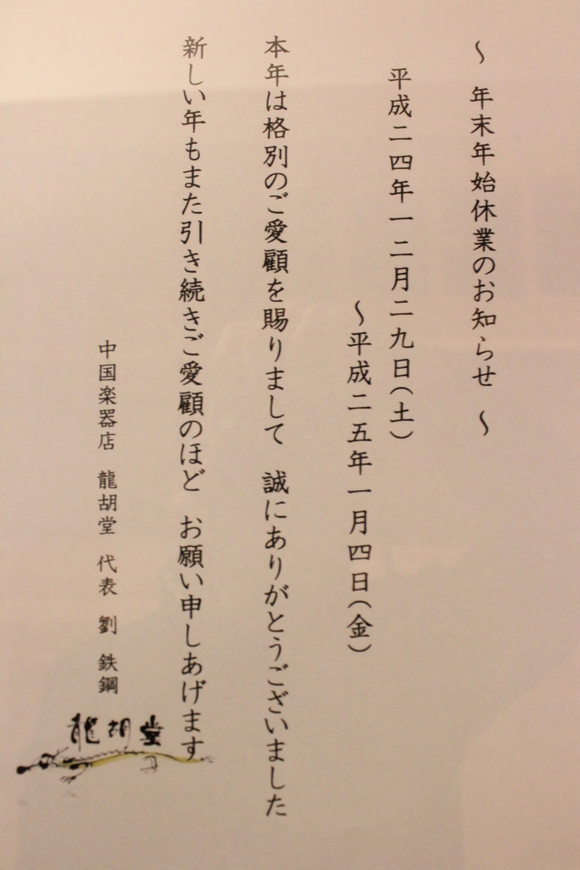 ～ 年末年始休業のお知らせ ～
平成二四年一二月二九日（土）
～平成二五年一月四日（金）
本年は格別のご愛顧を賜りまして　誠にありがとうございました
新しい年もまた引き続きご愛顧のほど　お願い申しあげます
中国楽器店　龍胡堂　代表　劉　鉄鋼
龍胡堂